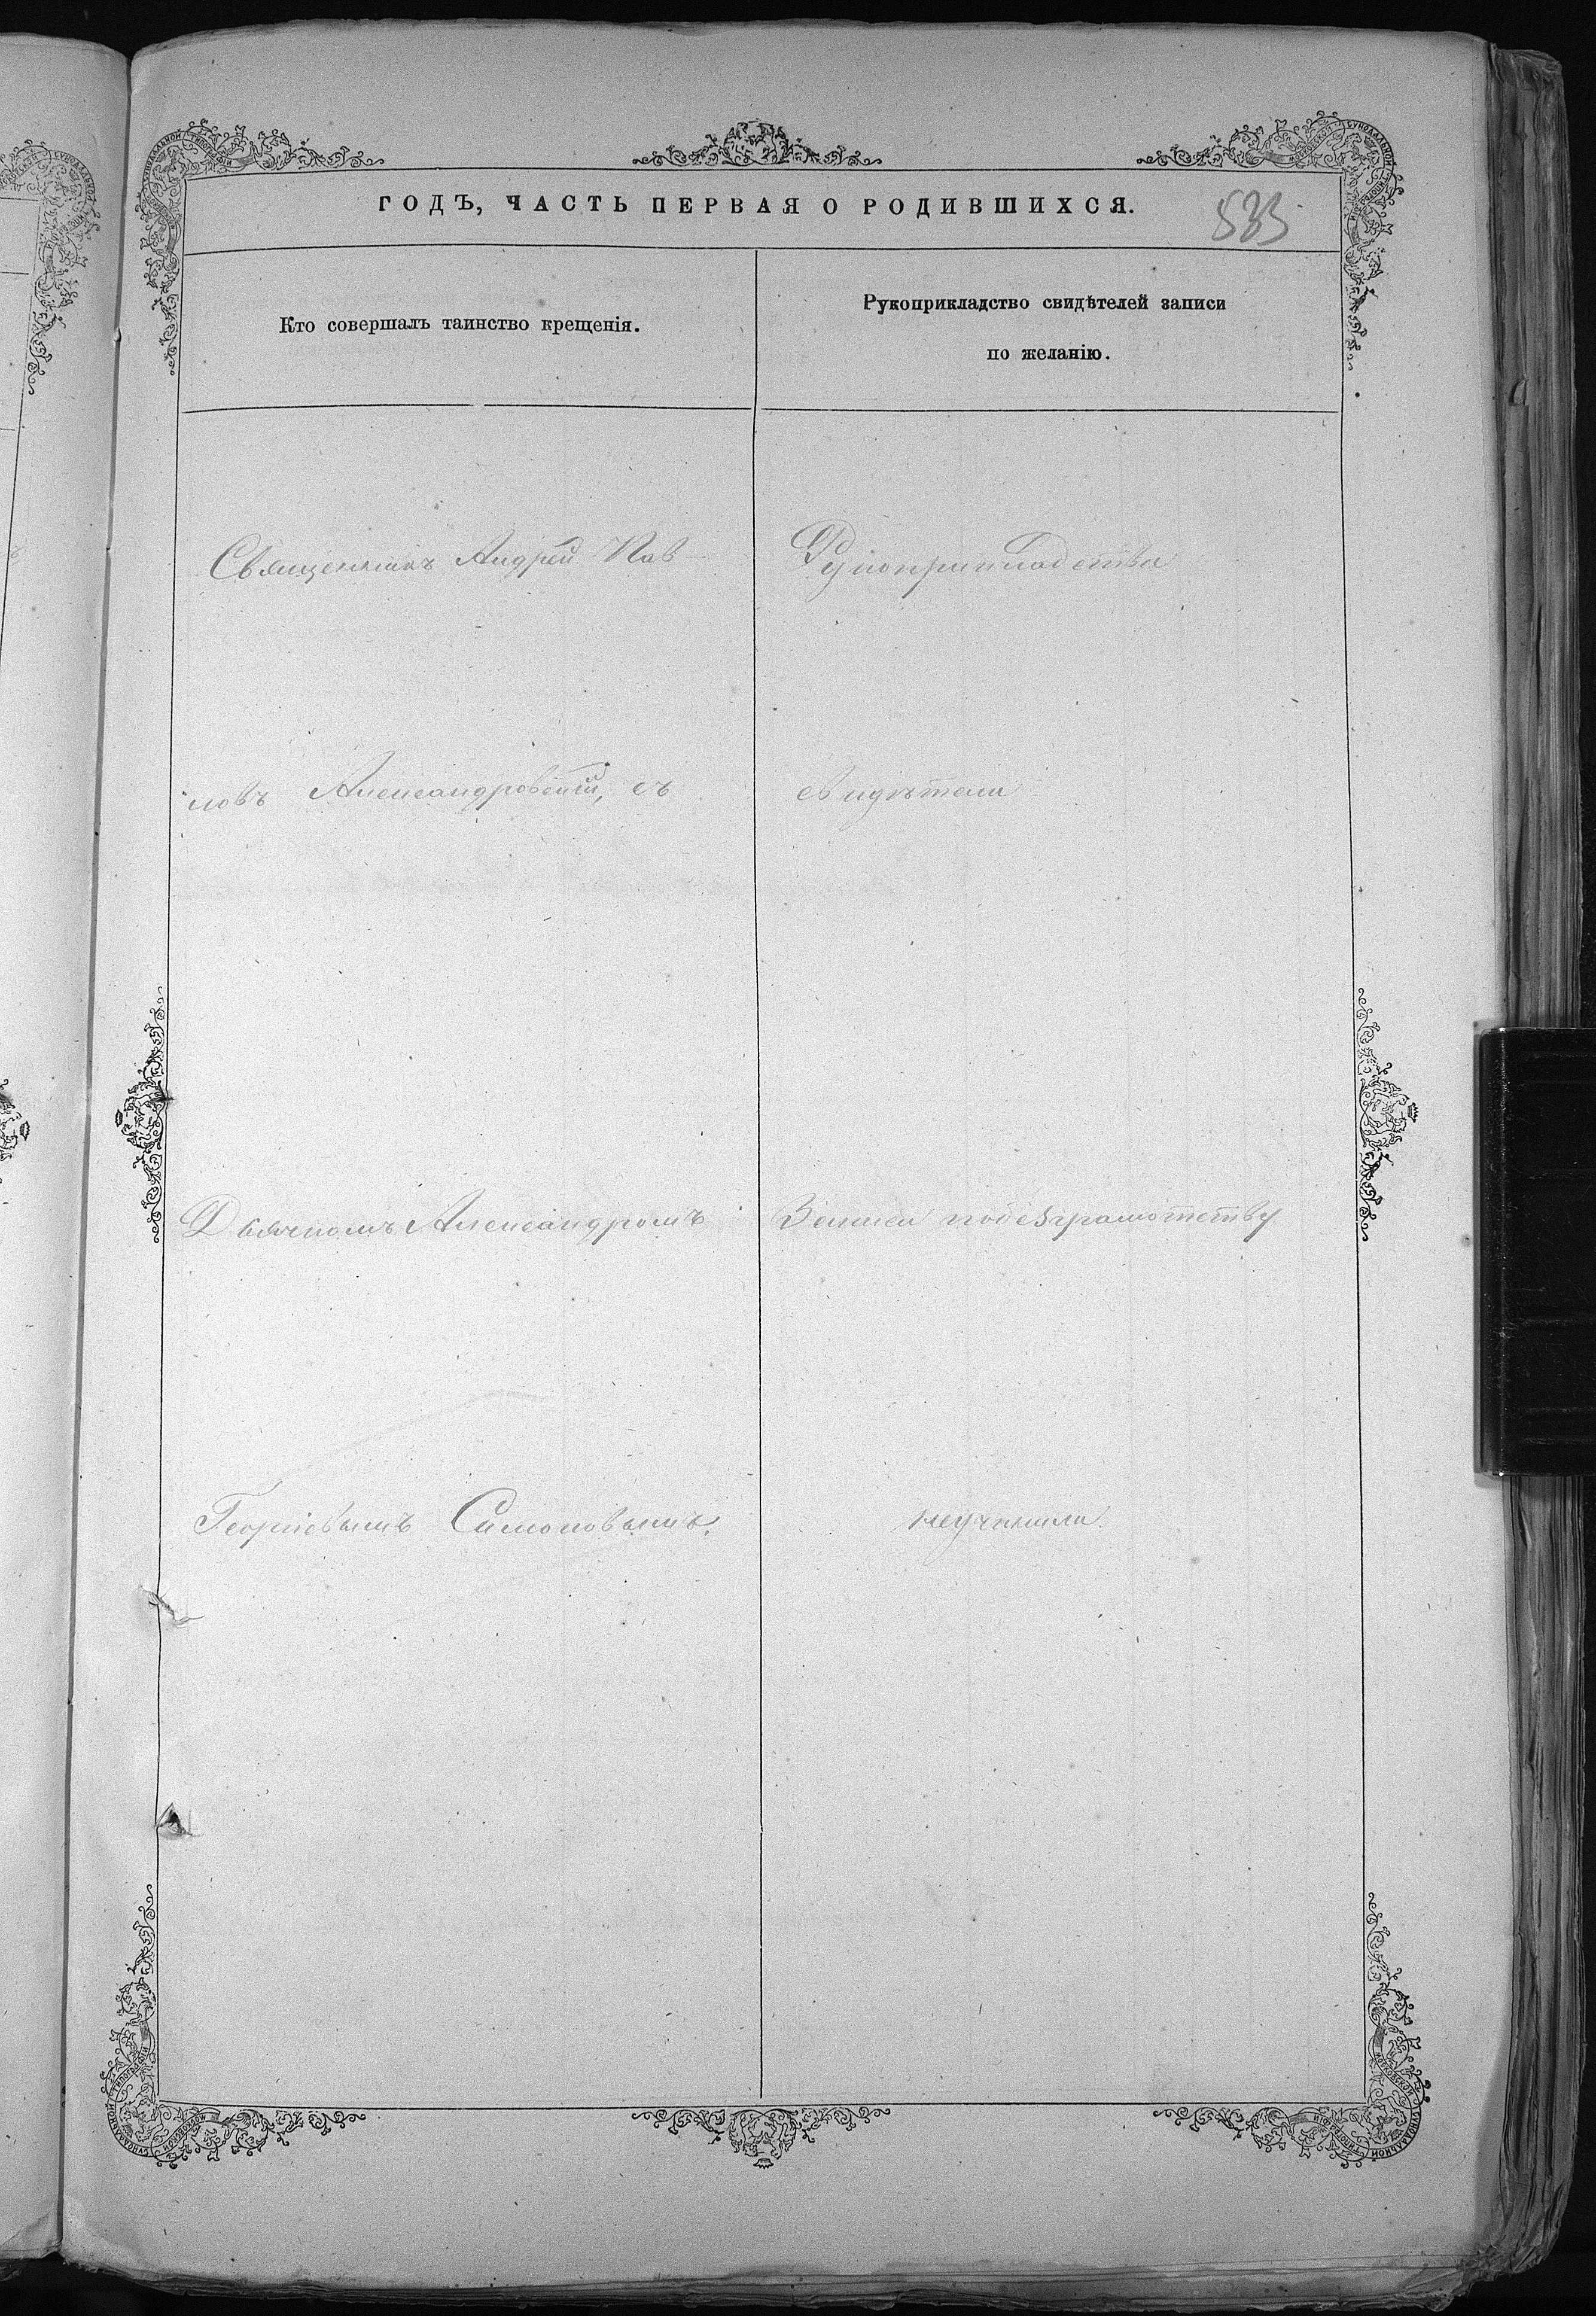 ГОДЪ, ЧАСТЬ ПЕРВАЯ О РОДИВШИХСЯ.
535
Кто совершалъ таинство крещенія.
Рукоприкладство свидѣтелей записи
по желанію.
Священникъ Андрей Пав-
ловъ Александровскій, съ
Дьячкомъ Александромъ
Георгіевымъ Симоновымъ.
Рукоприкладства
свидѣтели
Записи побезграмотству
неучинили.